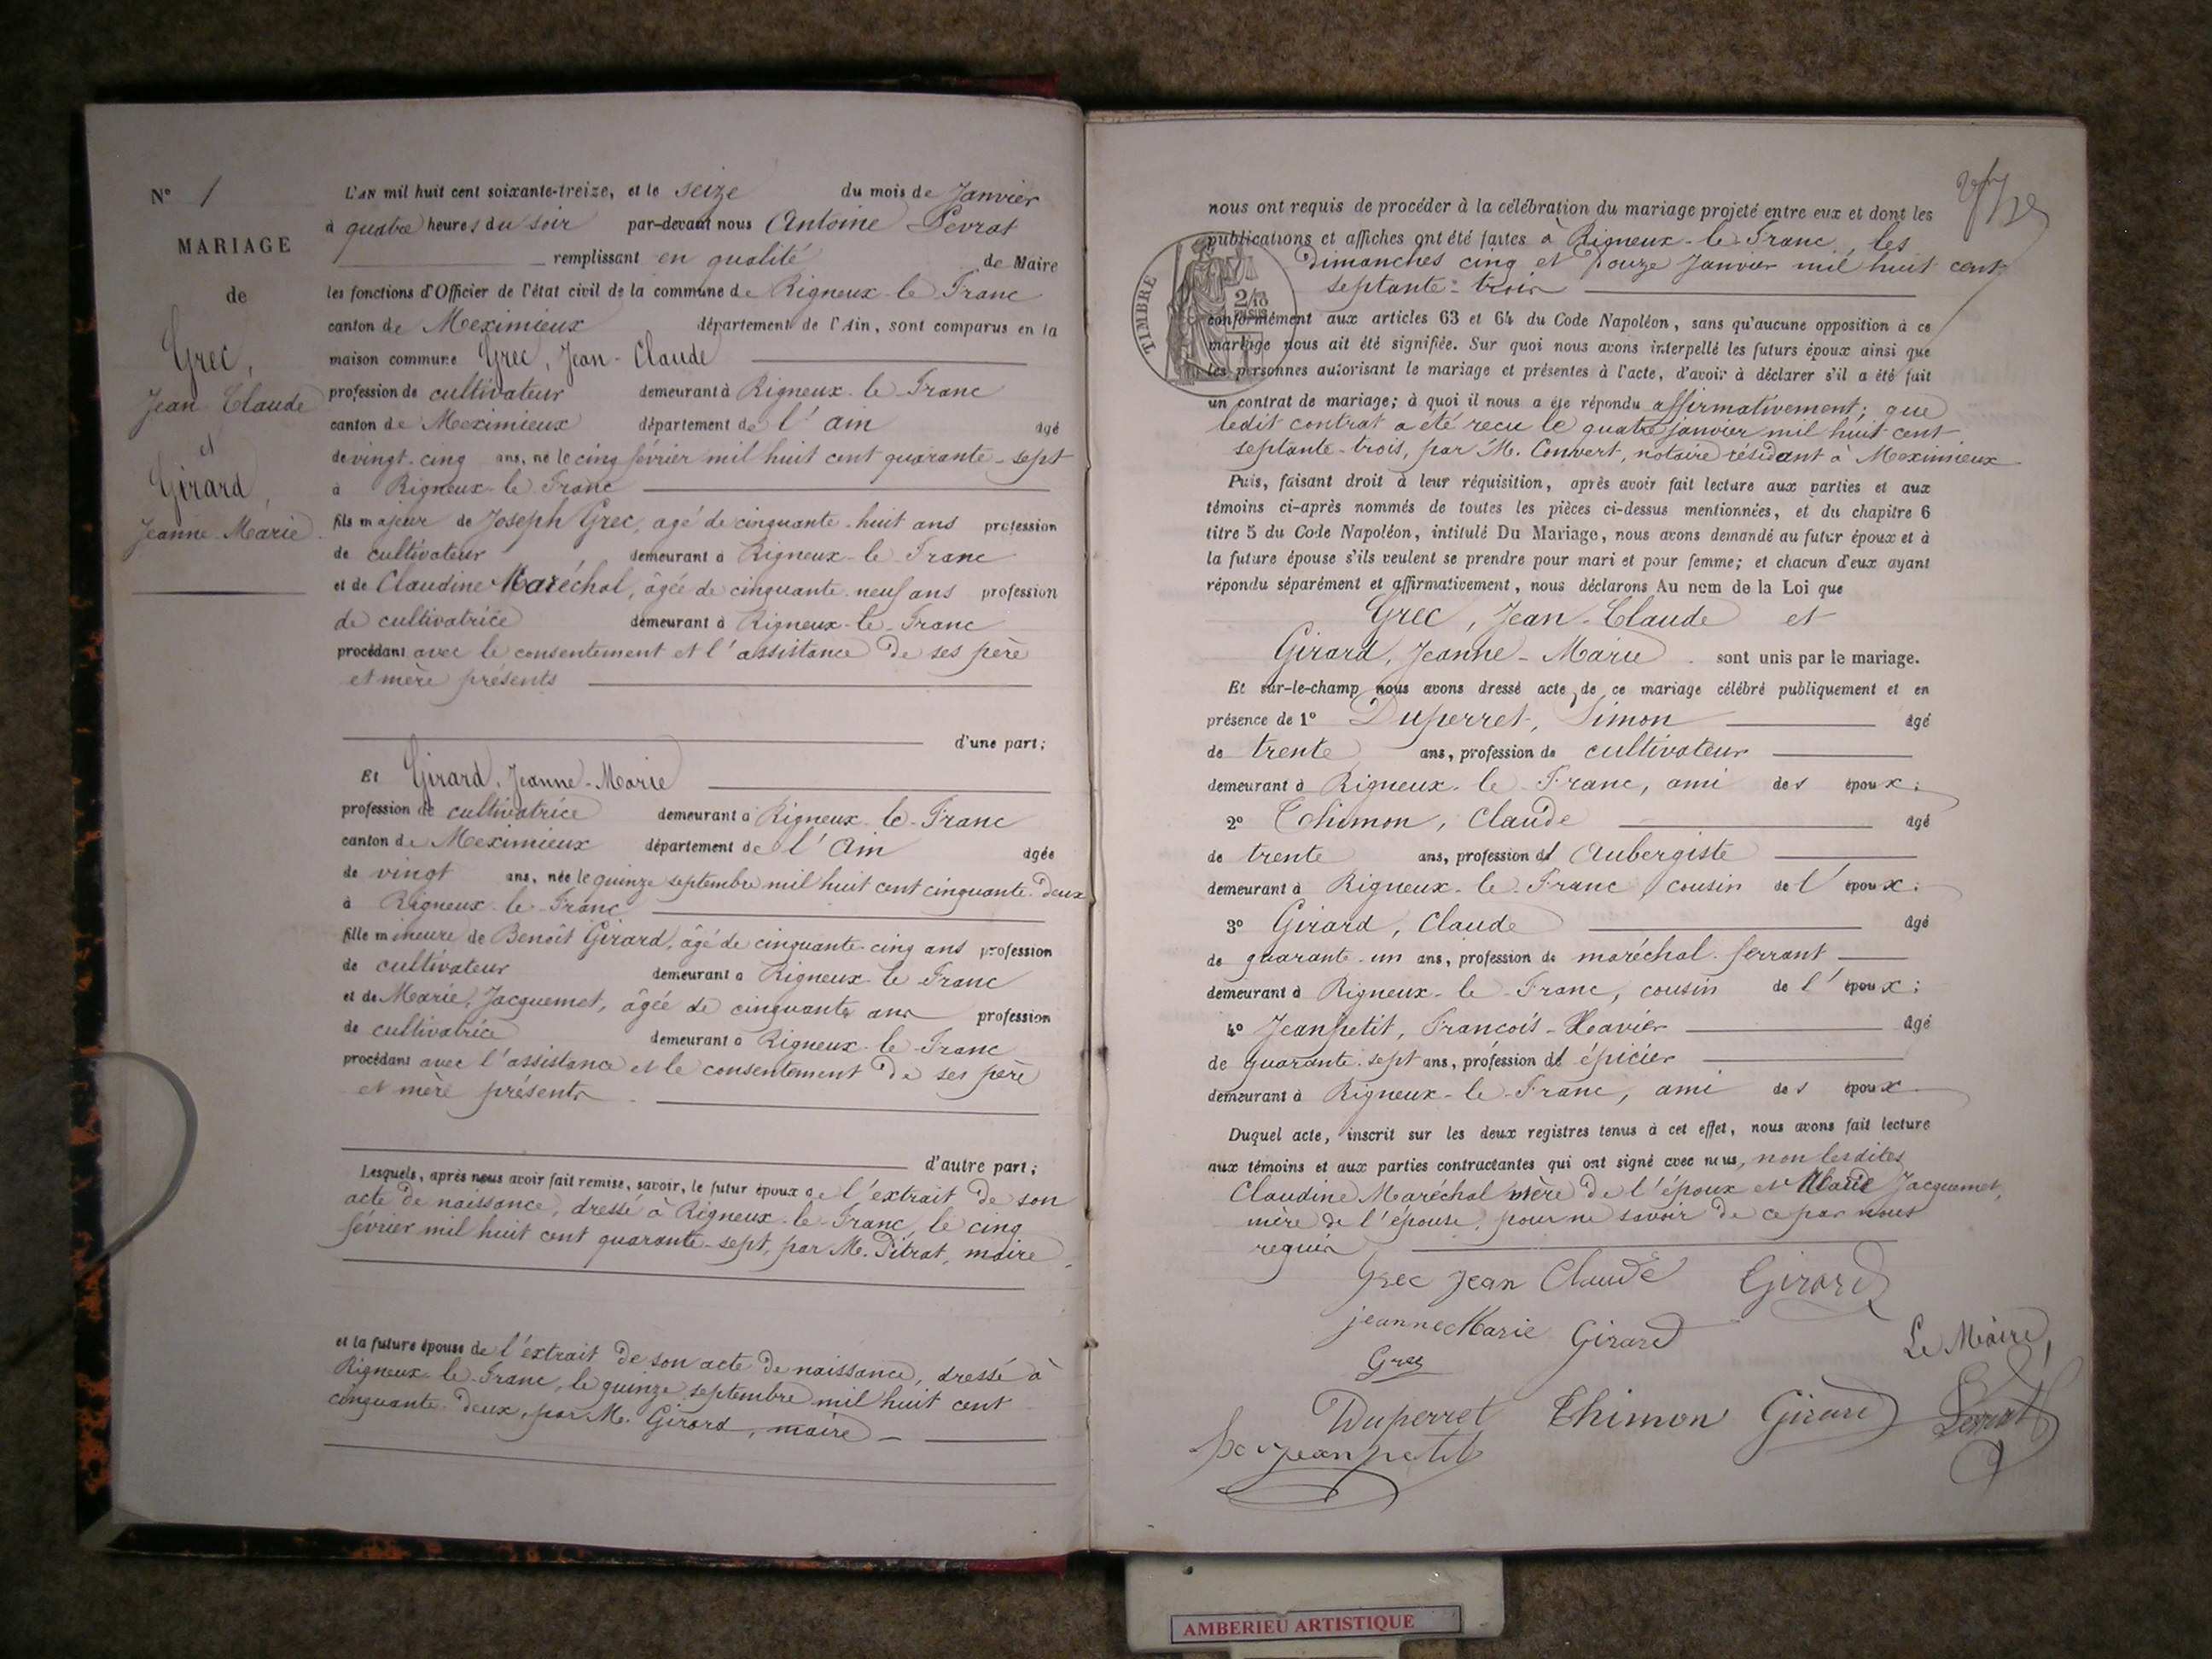 N° 1
MARIAGE
de
Grec,
Jean Claude
et
Girard,
Jeanne-Marie
L'AN mil huit cent soixante-treize, et le seize du mois de Janvier
à quatre heures du soir par-devant nous Antoine Pevrat
remplissant en qualité de Maire
les fonctions d'Officier de l'état civil de la commune de Rigneux-le-Franc
canton de Meximieux département de l'Ain, sont comparus en la
maison commune Grec, Jean-Claude
profession de cultivateur demeurant à Rigneux-le-Franc
canton de Meximieux département de l'ain agé
de vingt-cinq ans, né le cinq février mil huit cent quarante-sept
à Rigneux-le-Franc
fils majeur de Joseph Grec, agé de cinquante-huit ans profession
de cultivateur demeurant à Rigneux-le-Franc
et de Claudine Maréchal, âgée de cinquante-neuf ans profession
de cultivatrice demeurant à Rigneux-le-Franc
procédant avec le consentement et l'assistance de ses père
et mère présents
d'une part;
Et Girard, Jeanne-Marie
profession de cultivatrice demeurant à Rigneux-le-Franc
canton de Meximieux département de l'Ain agée
de vingt ans, née le quinze septembre mil huit cent cinquante-deux
à Rigneux-le-Franc
fille mineure de Benoît Girard, âgé de cinquante-cinq ans profession
de cultivateur demeurant à Rigneux-le-Franc
et de Marie, Jacquemet, âgée de cinquante ans profession
de cultivatrice demeurant à Rigneux-le-Franc
procédant avec l'assistance et le consentement de ses père
et mère présents
d'autre part;
Lesquels, après nous avoir fait remise, savoir, le futur époux de l'extrait de son
acte de naissance, dressé à Rigneux-le-Franc, le cinq
février mil huit cent quarante-sept, par M. Pitrat, maire,
et la future épouse de l'extrait de son acte de naissance, dressé à
Rigneux-le-Franc, le quinze septembre mil huit cent
cinquante-deux, par M. Girard, maire
nous ont requis de procéder à la célébration du mariage projeté entre eux et dont les
publications et affiches ont été faites à Rigneux-le-Franc, les
dimanches cinq et douze Janvier mil huit cent
septante-trois
TIMBRE
2/10
EN SUS
conformément aux articles 63 et 64 du Code Napoléon, sans qu'aucune opposition à ce
mariage nous ait été signifiée. Sur quoi nous avons interpellé les futurs époux ainsi que
les personnes autorisant le mariage et présentes à l'acte, d'avoir à déclarer s'il a été fait
un contrat de mariage; à quoi il nous a été répondu affirmativement; que
ledit contrat a été reçu le quatre janvier mil huit cent
septante-trois, par M. Convert, notaire résidant à Meximieux
Puis, faisant droit à leur réquisition, après avoir fait lecture aux parties et aux
témoins ci-après nommés de toutes les pièces ci-dessus mentionnées, et du chapitre 6
titre 5 du Code Napoléon, intitulé Du Mariage, nous avons demandé au futur époux et à
la future épouse s'ils veulent se prendre pour mari et pour femme; et chacun d'eux ayant
répondu séparément et affirmativement, nous déclarons Au nom de la Loi que
Grec, Jean-Claude et
Girard, Jeanne-Marie sont unis par le mariage.
Et sur-le-champ nous avons dressé acte de ce mariage célébré publiquement et en
présence de 1° Duperret, Simon agé
de trente ans, profession de cultivateur
demeurant à Rigneux-le-Franc, ami des époux;
2° Thimon, Claude agé
de trente ans, profession d' Aubergiste
demeurant à Rigneux-le-Franc, cousin de l'époux;
3° Girard, Claude agé
de quarante-un ans, profession de maréchal-ferrant
demeurant à Rigneux-le-Franc, cousin de l'époux;
4° Jeanpetit, François-Xavier âgé
de quarante-sept ans, profession d' épicier
demeurant à Rigneux-le-Franc, ami des époux
Duquel acte, inscrit sur les deux registres tenus à cet effet, nous avons fait lecture
aux témoins et aux parties contractantes qui ont signé avec nous, non lesdites
Claudine Maréchal mère de l'époux et Marie Jacquemet,
mère de l'épouse, pour ne savoir de ce par nous
requis
Grec Jean Claude Girard
jeanne Marie Girard
Le Maire,
Grec
Duperret Thimon Girard Pevrat
jeanpetit
AMBERIEU ARTISTIQUE